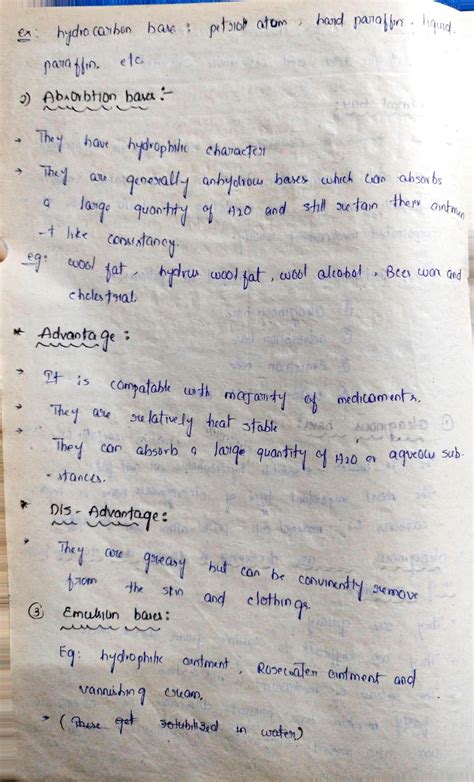 ex: hydrocarbon base: petriol atom, hard paraffin, liquid.
paraffin. etc.
2) Absorbtion bases:-
→ They have hydrophilic character
→ They are generally anhydrous bases which can absorbs
a large quantity of H2O and still retain their ointmen
-t like consistancy.
eg: wool fat, hydrus wool fat, wool alcohol, Bees wax and
cholestrial
* Advantage:
→ It is compatable with majarity of medicaments.
→ They are relatively heat stable
→ They can absorb a large quantity of H2O or aqueou sub-
-stances.
* DIS-Advantage:
→ They are greasy but can be convinently remove
from the skin and clothings.
③ Emulsion bases:
Eg: hydrophilic ointment, Rosewater ointment and
vannishing cream,
→ (These get solubilized in water)